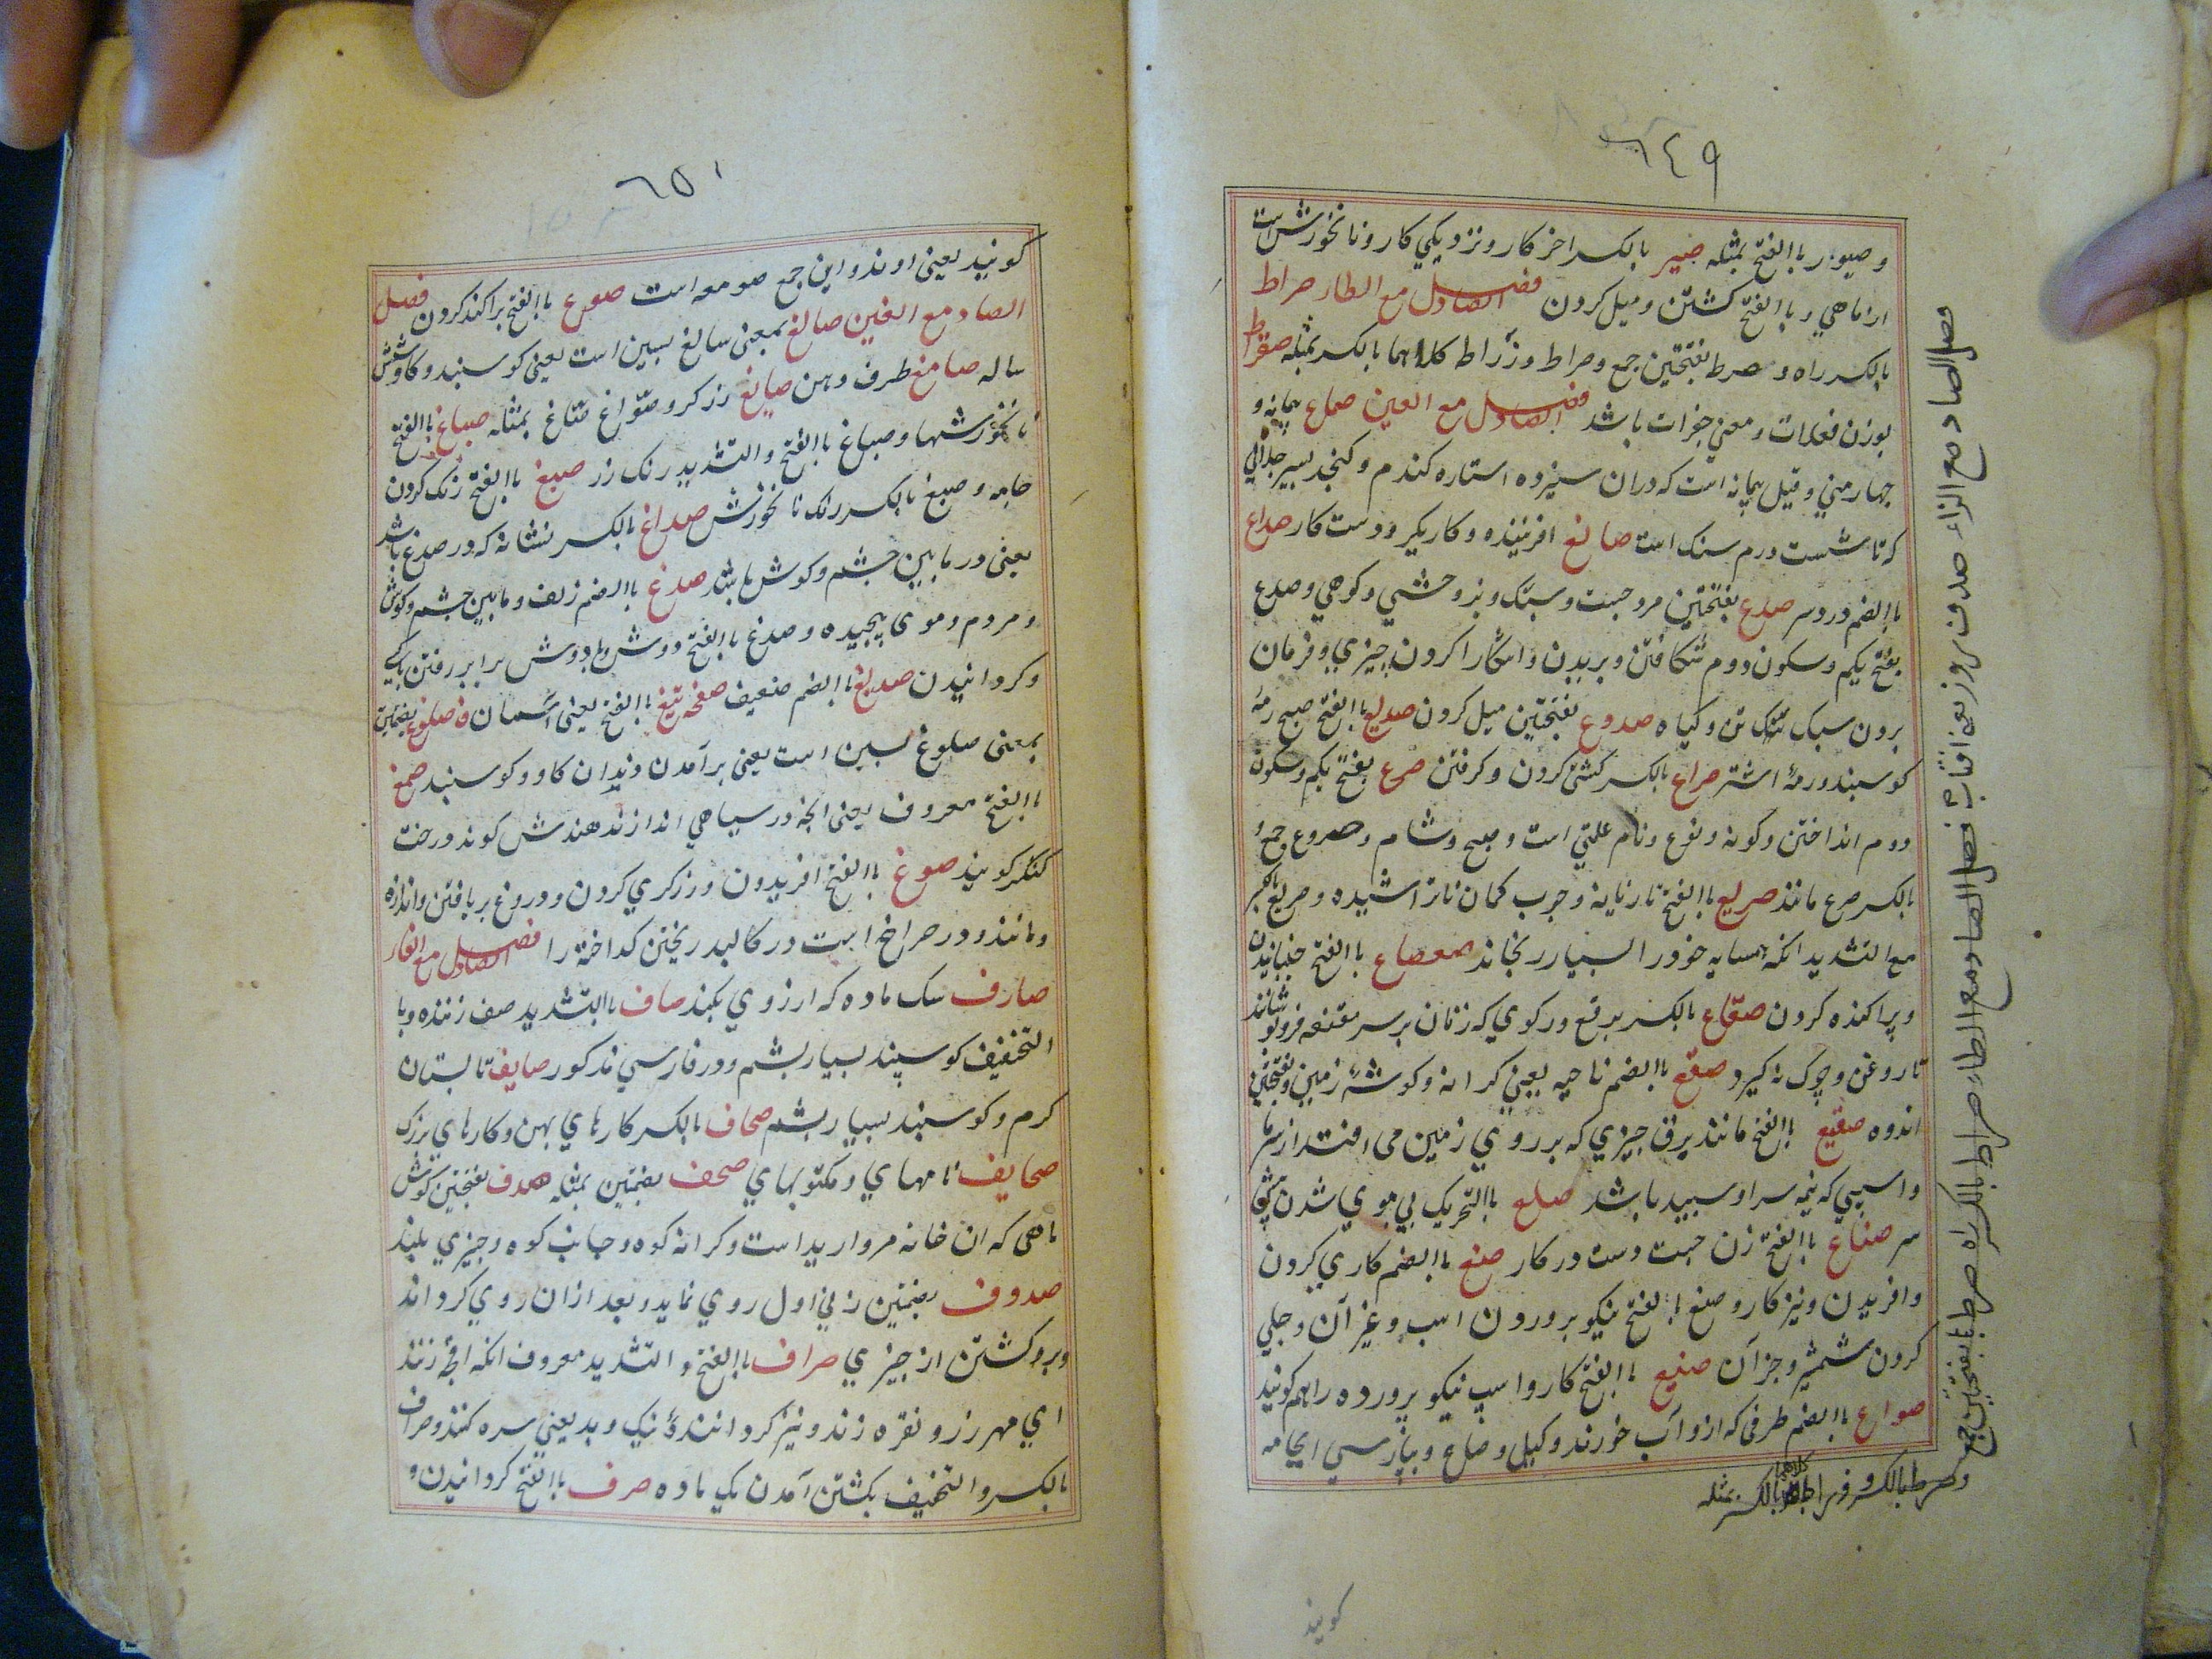 ٦٤٩
و صیور باالفتح بمثله صیر بالکسر اخر کار و نزدیکي کار و نانخورش است
از ماهي و باالفتح کشتن و میل کردن فصل الصاد مع الطاء صراط
بالکسر راه و صرط بفتحتین جمع و صراط و زراط کلاهما بالکسر بمثله
بوزن فعلات و معني جغرات باشد فصل الصاد مع العین صاع پیمانه و
چهار مني و قیل پیمانه است که دران سیزده استاره کندم و کنجد بسیر
که تا شست درم سنک است صانع افریننده و کاریکر و دست کار صداع
باالضم درد سر صدع بفتحتین مرد جست و سبک و بز وحشي و کوهي و صدع
بفتح یکم و سکون دوم شکافتن و بریدن و اشکارا کردن چیزي و فرمان
بردن سبک تن و کیاه صدوع بفتحتین میل کردن صدیع باالفتح صبح رمهٔ
کوسبند و رمهٔ اشتر صراع بالکسر کشتي کردن و کرفتن صرع بفتح یکم و سکون
دوم انداختن و کونه و نوع و نام علتي است و صبح و شام و صروع جمع و
بالکسر صرع مانند صریع باالفتح تازیانه و چوب کمان ناتراشیده و صریع بالکسر
مع التشدید انکه همسایه خود را بسیار رنجاند صعصاع باالفتح جنبانیدن
و پراکنده کردن صقاع بالکسر برقع و رکوي که زنان بر سر مقنعه فروپوشانند
تا روغن و چرک نه کیرد صقع باالضم ناحیه یعني کرانه و کوشهٔ زمین و بفتحتین
اندوه صقیع باالفتح مانند برف چیزي که بر روي زمین مي افتد از سرما
و اسبي که نیمه سر او سبید باشد صلع باالتحریک بي موي شدن پیش
سر صناع باالفتح زن جست دست در کار صنع باالضم کاري کردن
و افریدن و نیز کار و صنع باالفتح نیکو بروردن اسب و غیر آن و جلي
کردن شمشیر و جز آن صنیع باالفتح کار و اسب نیکو پرورده را هم کویند
صواع باالضم ظرفي که ازو آب خورند و کیل و صاع و بپارسي ایجامه
فصل الصاد مع الزاء صدف روز یعني افتاب فصل الصاد مع الطاء صراط بالکسر راه صرط بفتحتین جمع
و صرط بالکسر و زراط کلاهما بالکسر بمثله
کویند
٦٥١
کویند یعني اوند و این جمع صومعه است صوع باالفتح براکند کردن فصل
الصاد مع الغین صالغ بمعني سالغ بسین است یعني کوسبند و کاو شش
ساله صامغ طرف دهن صایغ زرکر و صواغ صناغ بمثله صباغ باالفتح
نانخورشها و صباغ باالفتح والتشدید رنک رز صبغ باالفتح رنک کردن
جامه و صبغ بالکسر رنک نانخورش صداغ بالکسر نشانه که در صدغ باشد
یعني در مابین چشم و کوش باشد صدغ باالضم زلف و مابین چشم و کوش
و مردم و موي پیچیده و صدغ باالفتح دوش بدوش برابر رفتن با کسي
و کردانیدن صدیغ باالضم ضعیف صفحه تیغ باالفتح یعني آسمان صلوغ بضمتین
بمعني صلوغ بسین است یعني برآمدن دندان کاو و کوسبند صمغ
باالفتح معروف یعني انچه در سیاهي اندازند هندش کوند درخت
کنکر کویند صوغ باالفتح افریدن و زرکري کردن و دروغ بربافتن و اندازه
و مانند و در صراخ است در کالبد ریختن کداخته را فصل الصاد مع الفاء
صارف سک ماده که ارزوي بکند صاف باالتشدید صف زننده و با
التخفیف کوسپند بسیار پشم و در فارسي مذکور صایف تابستان
کرم و کوسبند بسیار پشم صحاف بالکسر کارهاي پهن و کارهاي بزرک
صحایف نامهاي و مکتوبهاي صحف بضمتین بمثله صدف بفتحتین کوش
ماهي که ان خانه مروارید است و کرانه کوه و جانب کوه و چیزي بلند
صدوف بضمتین زني اول روي نماید و بعد ازان روي کرداند
و بر کشتن از چیزي صراف باالفتح و التشدید معروف انکه اقچه زنند
اي مهر زر و نقره زند و نیز کردانندهٔ نیک و بد یعني سره کنند و صراف
بالکسر و التخفیف بکشتن آمدن یک ماده صرف باالفتح کردانیدن و